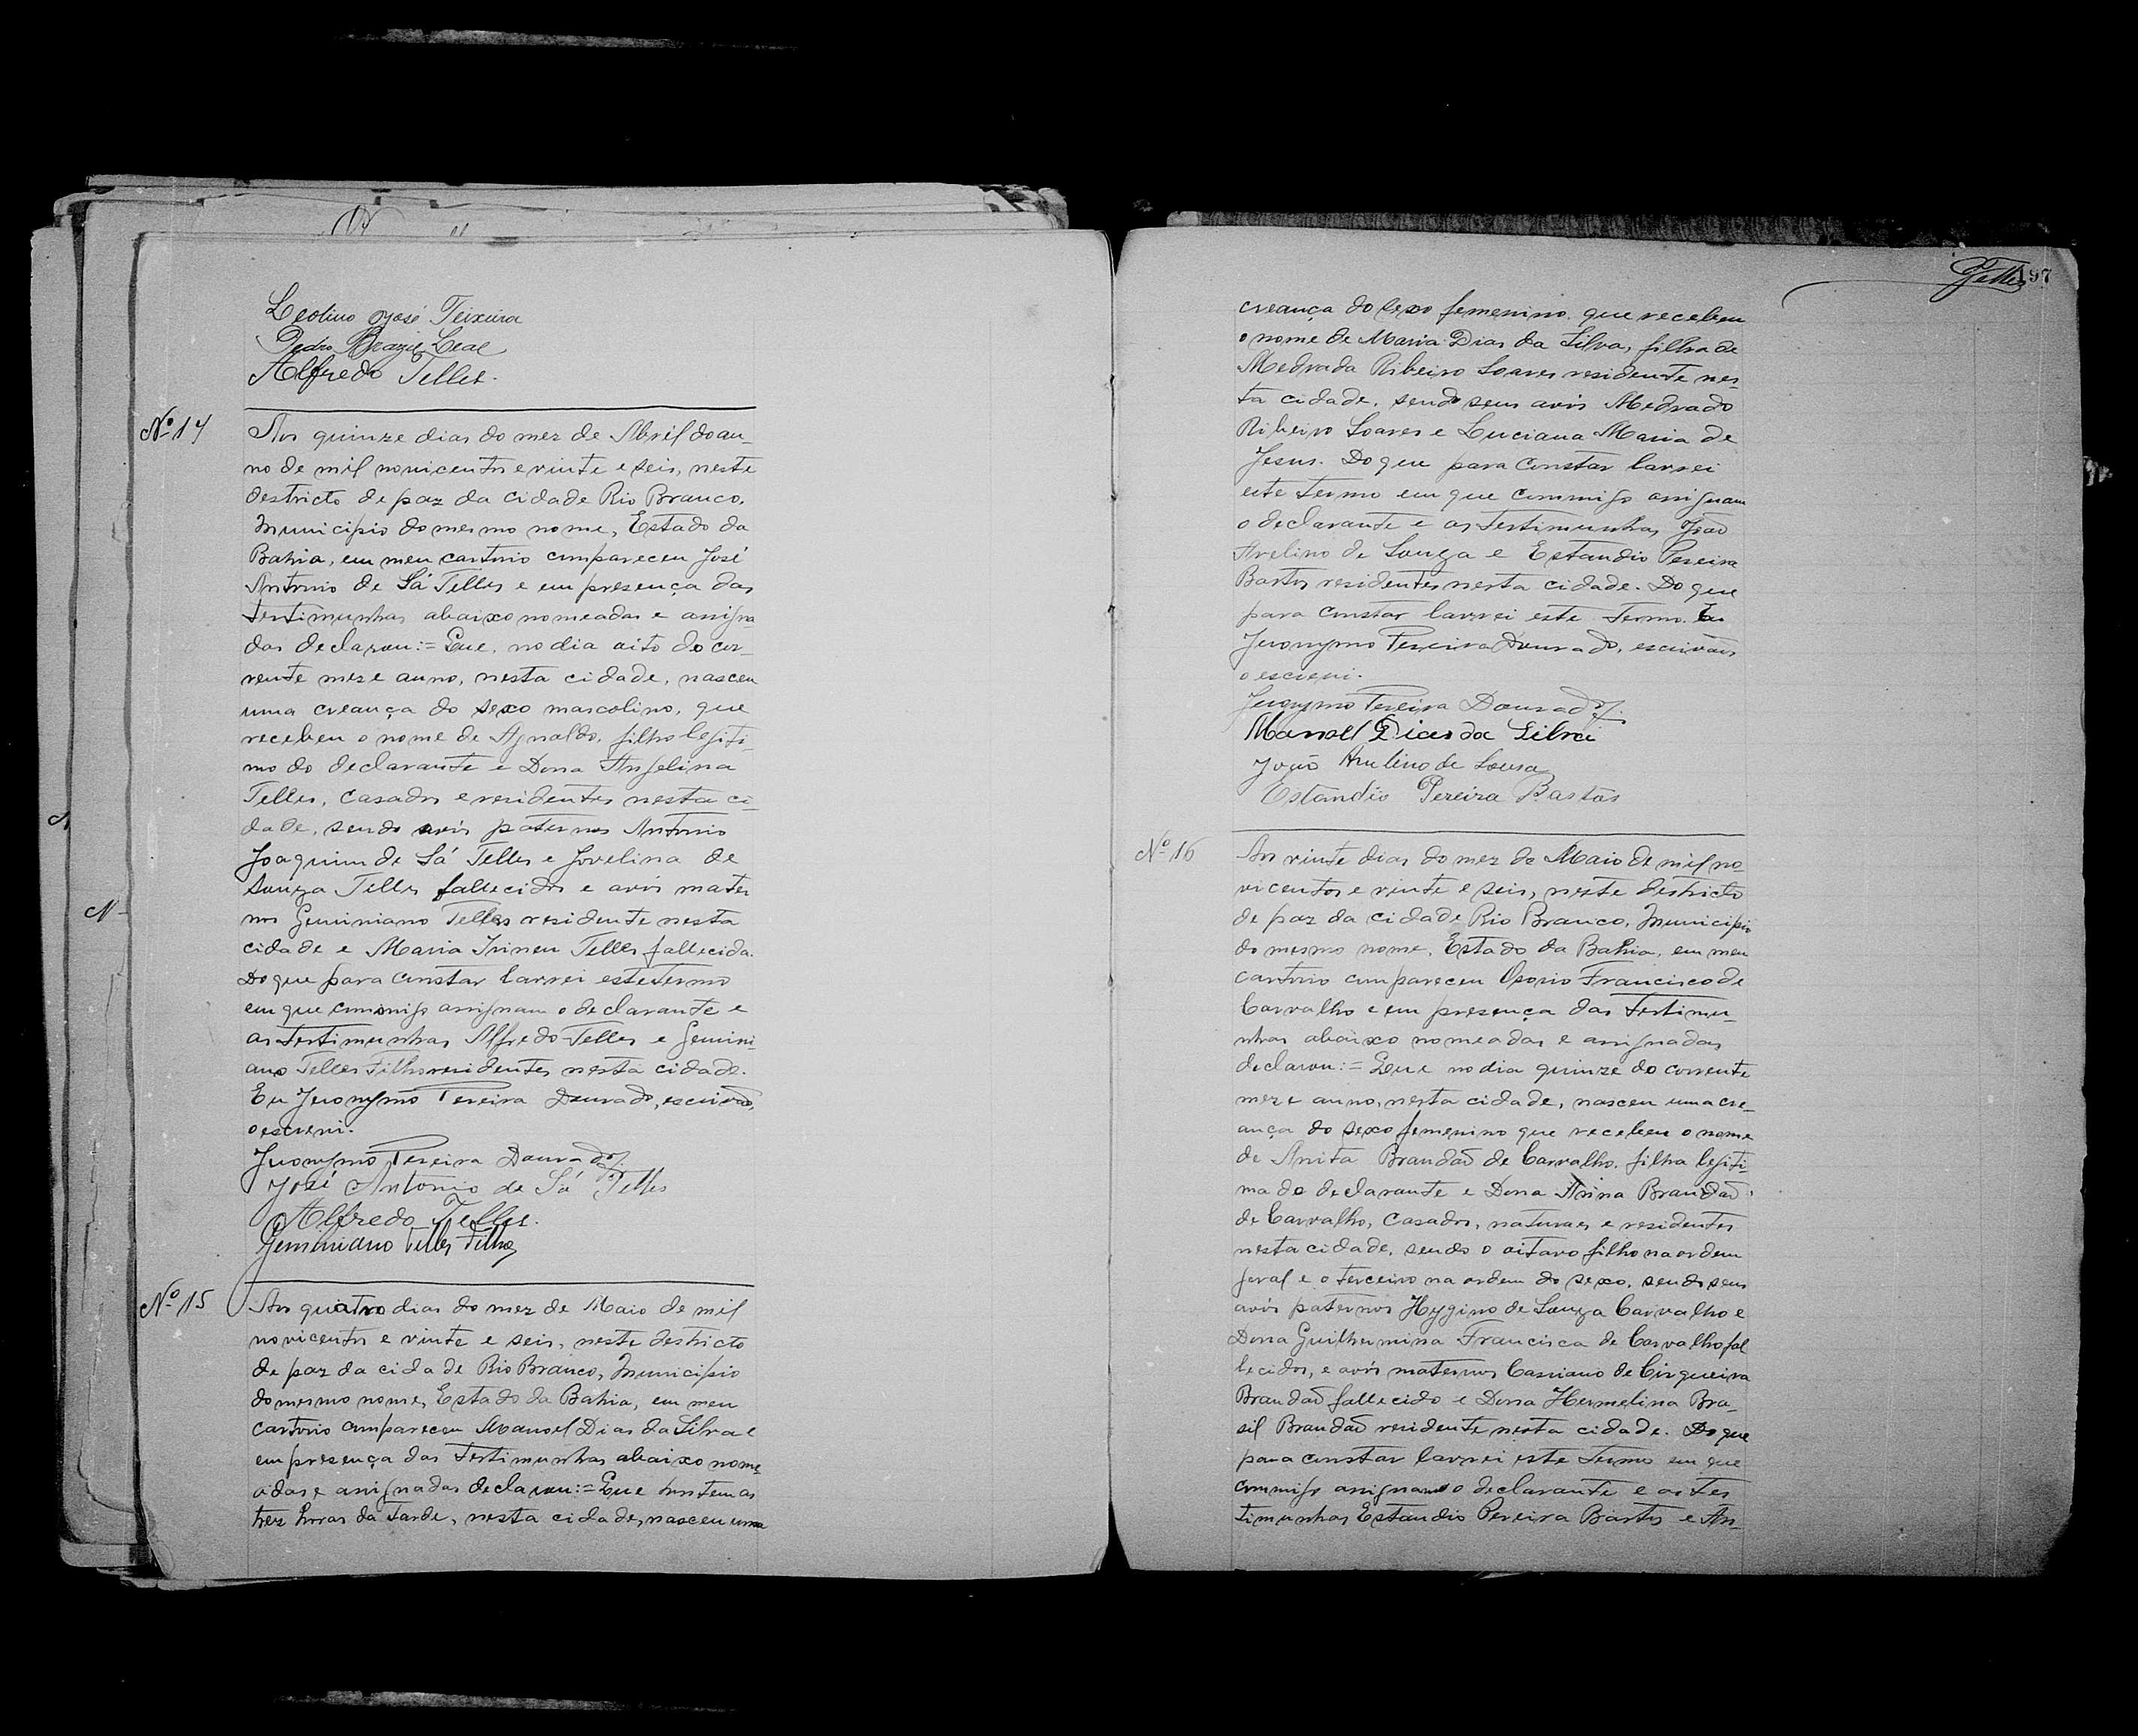 Leolino José Teixeira
Pedro Brazil Leal
Alfredo Telles.
Nº 14
Aos quinze dias do mez de Abril do an-
no de mil novicentos e vinte e seis, neste
destricto de paz da cidade Rio Branco,
Municipio do mesmo nome, Estado da
Bahia, em meu cartorio compareceu José
Antonio de Sá Telles e em presença das
testimunhas abaixo nomeadas e assigna
das declarou:= Que, no dia oito do cor-
rente mez e anno, nesta cidade, nasceu
uma creança do sexo mascolino, que
recebeu o nome de Agnaldo, filho legiti-
mo do declarante e Dona Angelina
Telles, casados e residentes nesta ci-
dade, sendo avós paternos Antonio
Joaquim de Sá Telles e Jovelina de
Souza Telles fallecidos e avós mater
nos Geminiano Telles residente nesta
cidade e Maria Irineu Telles fallecida.
Do que para constar lavrei este termo
em que commigo assignam o declarante e
as testimunhas Alfredo Telles e Gemini-
ano Telles Filho residentes nesta cidade.
Eu Jeronymo Pereira Dourado, escrivão,
o escrevi.
Jeronymo Pereira Dourado
José Antonio de Sá Telles
Alfredo Telles.
Geminiano Telles Filho
Nº 15
Aos quatro dias do mez de Maio de mil
novicentos e vinte e seis, neste destricto
de paz da cidade Rio Branco, Municipio
do mesmo nome, Estado da Bahia, em meu
cartorio compareceu Manoel Dias da Silva e
em presença das testimunhas abaixo nome
adas e assignadas declarou:= Que hontem as
trez horas da tarde, nesta cidade, nasceu uma
Telles 197
creança do sexo femenino que recebeu
o nome de Maria Dias da Silva, filha de
Medrada Ribeiro Soares residente nes-
ta cidade, sendo seus avós Medrado
Ribeiro Soares e Luciana Maria de
Jesus. Do que para constar lavrei
este termo em que commigo assignam
o declarante e as testimunhas João
Avelino de Souza e Estandio Pereira
Bastos residentes nesta cidade. Do que
para constar lavrei este termo. Eu
Jeronymo Pereira Dourado, escrivão
o escrevi.
Jeronymo Pereira Dourado
Manoel Dias da Silva
João Avelino de Sousa
Estandio Pereira Bastos
Nº 16
Aos vinte dias do mez de Maio de mil no-
vicentos e vinte e seis, neste destricto
de paz da cidade Rio Branco, Municipio
do mesmo nome, Estado da Bahia, em meu
cartorio compareceu Osorio Francisco de
Carvalho e em presença das testimu-
nhas abaixo nomeadas e assignadas
declarou:= Que no dia quinze do corrente
mez e anno, nesta cidade, nasceu uma cre-
ança do sexo femenino que recebeu o nome
de Anita Brandão de Carvalho, filha legiti-
ma do declarante e Dona Anna Brandão
de Carvalho, casados, naturaes e residentes
nesta cidade, sendo o oitavo filho na ordem
geral e o terceiro na ordem do sexo, sendo seus
avós paternos Hygino de Souza Carvalho e
Dona Guilhermina Francisca de Carvalho fal
lecidos, e avós maternos Cassiano de Cirqueira
Brandão fallecido e Dona Hermelina Bra-
sil Brandão residente nesta cidade. Do que
para constar lavrei este termo em que
commigo assignam o declarante e as tes
timunhas Estandio Pereira Bastos e An-